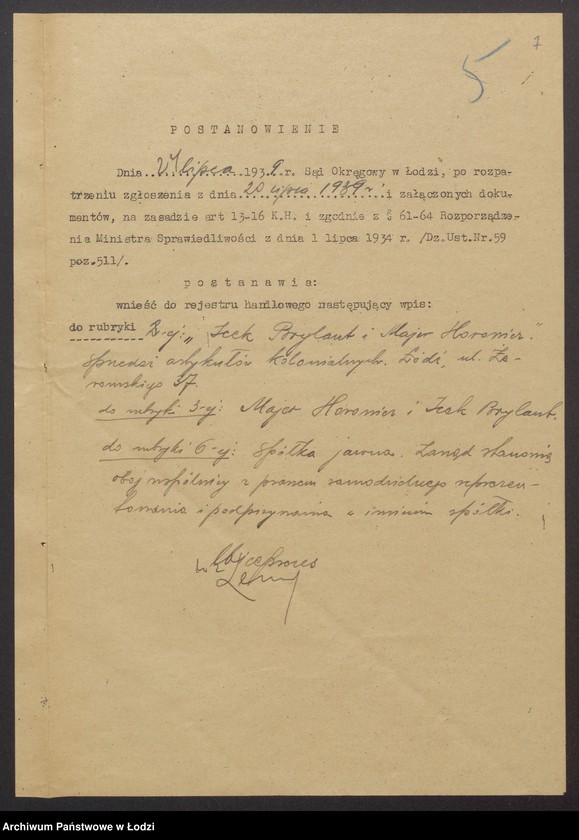 7
5
POSTANOWIENIE
Dnia lipca 1939 r. Sąd Okręgowy w Łodzi, po rozpa-
trzeniu zgłoszenia z dnia 20 lipca 1939 r i załączonych doku-
mentów, na zasadzie art 13-16 K.H. i zgodnie z § 61-64 Rozporządze-
nia Ministra Sprawiedliwości z dnia 1 lipca 1934 r. /Dz.Ust.Nr.59
poz.511/.
postanawia:
wnieść do rejestru handlowego następujący wpis:
do rubryki 2-ej: "Icek Brylant i Majer Horonier."
Sprzedaż artykułów kolonialnych. Łódź, ul. Że-
romskiego 37.
do rubryki 3-ej: Majer Horonier i Icek Brylant.
do rubryki 6-ej: Spółka jawna. Zarząd stanowią
obaj wspólnicy z prawem samodzielnego reprezen-
towania i podpisywania w imieniu spółki.
Wiceprezes
Archiwum Państwowe w Łodzi